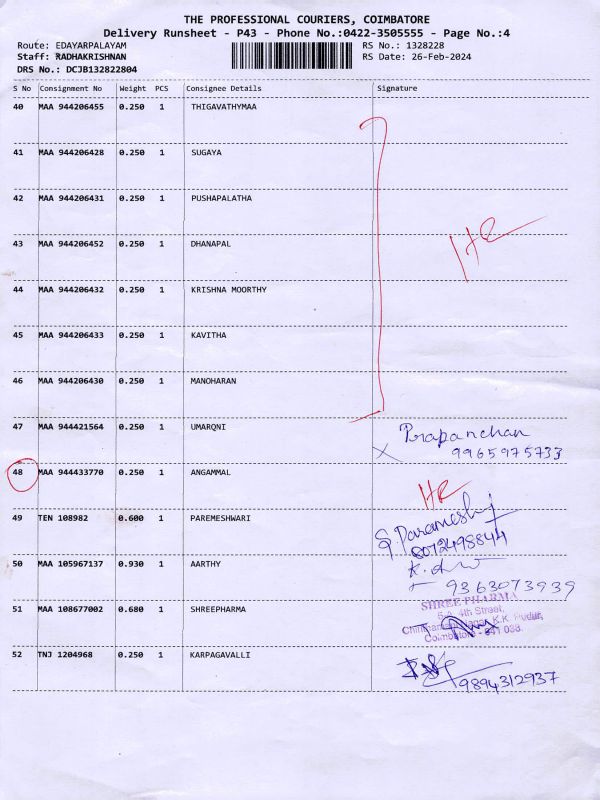 THE PROFESSIONAL COURIERS, COIMBATORE
Delivery Runsheet - P43 - Phone No.:0422-3505555 - Page No.:4
Route: EDAYARPALAYAM RS No.: 1328228
Staff: RADHAKRISHNAN RS Date: 26-Feb-2024
DRS No.: DCJB132822804
S No Consignment No Weight PCS Consignee Details Signature
40 MAA 944206455 0.250 1 THIGAVATHYMAA
41 MAA 944206428 0.250 1 SUGAYA
42 MAA 944206431 0.250 1 PUSHAPALATHA
43 MAA 944206452 0.250 1 DHANAPAL
44 MAA 944206432 0.250 1 KRISHNA MOORTHY
45 MAA 944206433 0.250 1 KAVITHA
46 MAA 944206430 0.250 1 MANOHARAN
47 MAA 944421564 0.250 1 UMARONI Prapanchan
9965975733
48 MAA 944433770 0.250 1 ANGAMMAL
49 TEN 108982 0.600 1 PAREMESHWARI
8072498844
50 MAA 105967137 0.930 1 AARTHY
9363073939
51 MAA 108677002 0.680 1 SHREEPHARMA SHREE PHARMA
5-A, 4th Street,
Nagar, K.K. Pudur,
Coimbatore - 641 038.
52 TNJ 1204968 0.250 1 KARPAGAVALLI
9894312937